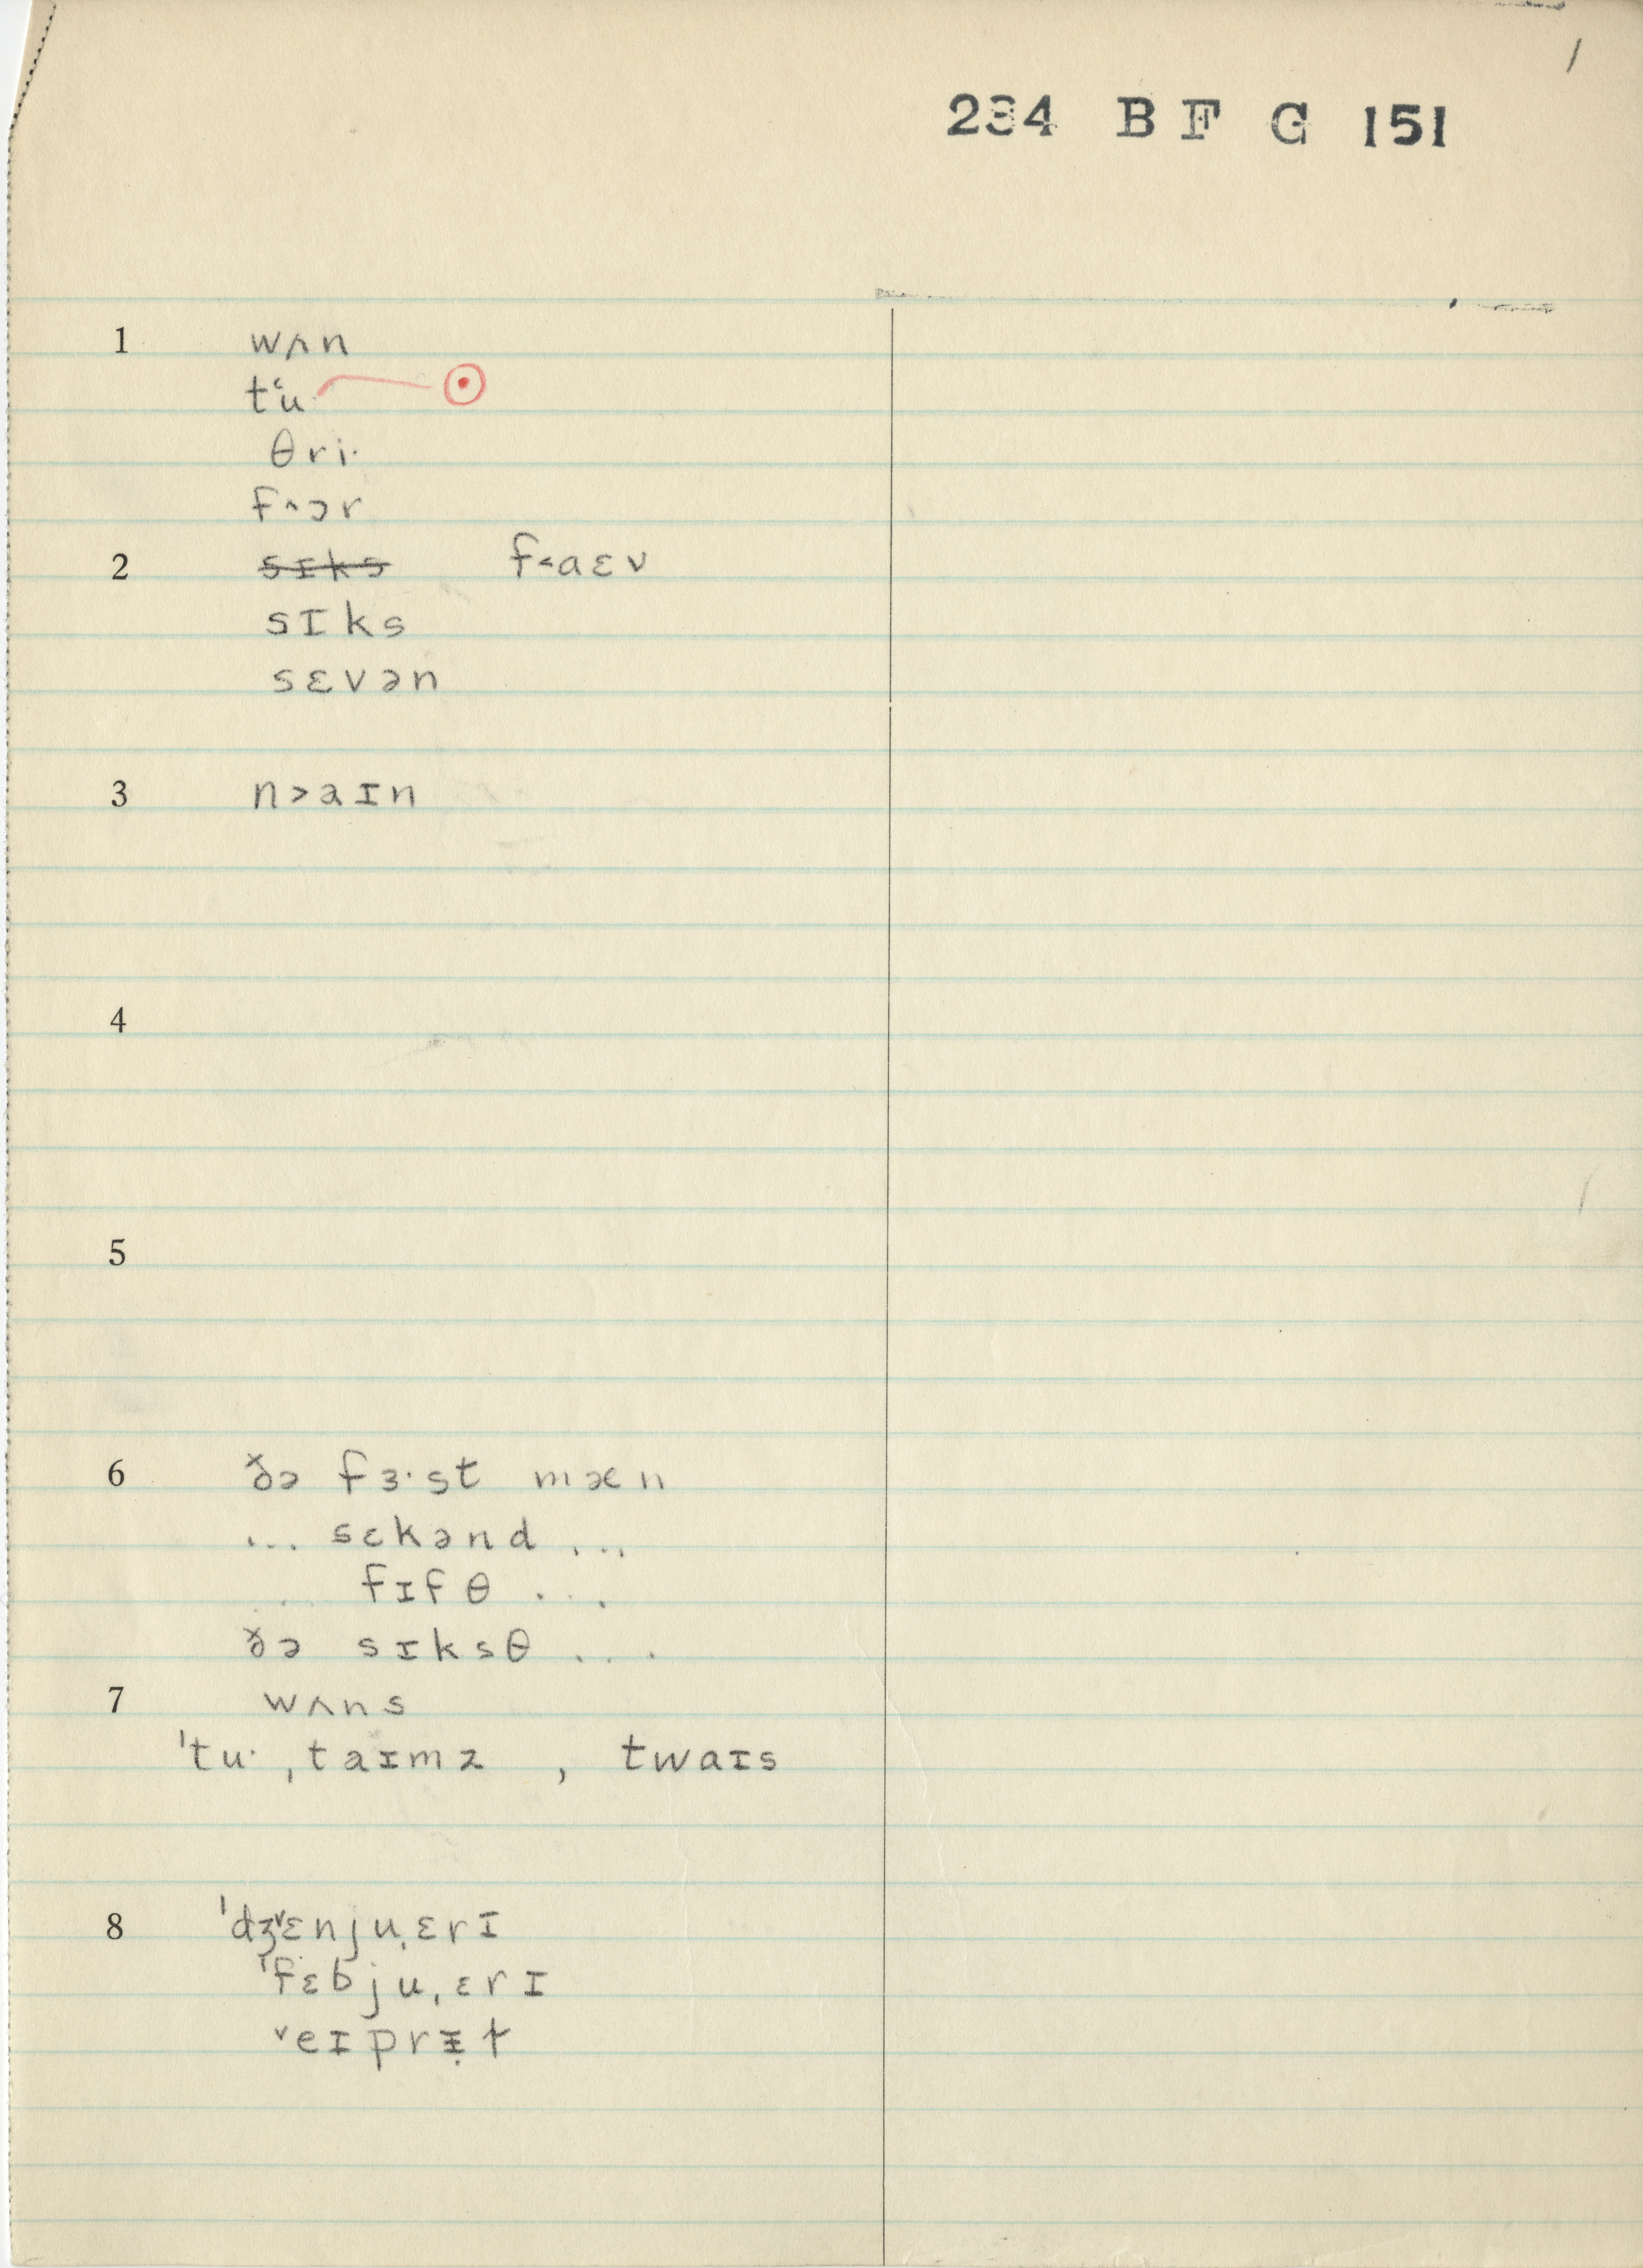 1
234 B F G 151
1 wʌn
tʻu·
θri·
f^ɔr
2 sɪks f<aɛv
sɪks
sɛvən
3 n>aɪn
4
5
6 ðə fɜ·st mæn
... sɛkənd ...
.. fɪfθ ...
ðə sɪksθ ...
7 wʌns
ˈtu· ˌtaɪmz , twaɪs
8 ˈdʒ˅ɛnjuˌɛrɪ
ˈfɛbjuˌɛrɪ
˅eɪprɪ̵̣ɫ